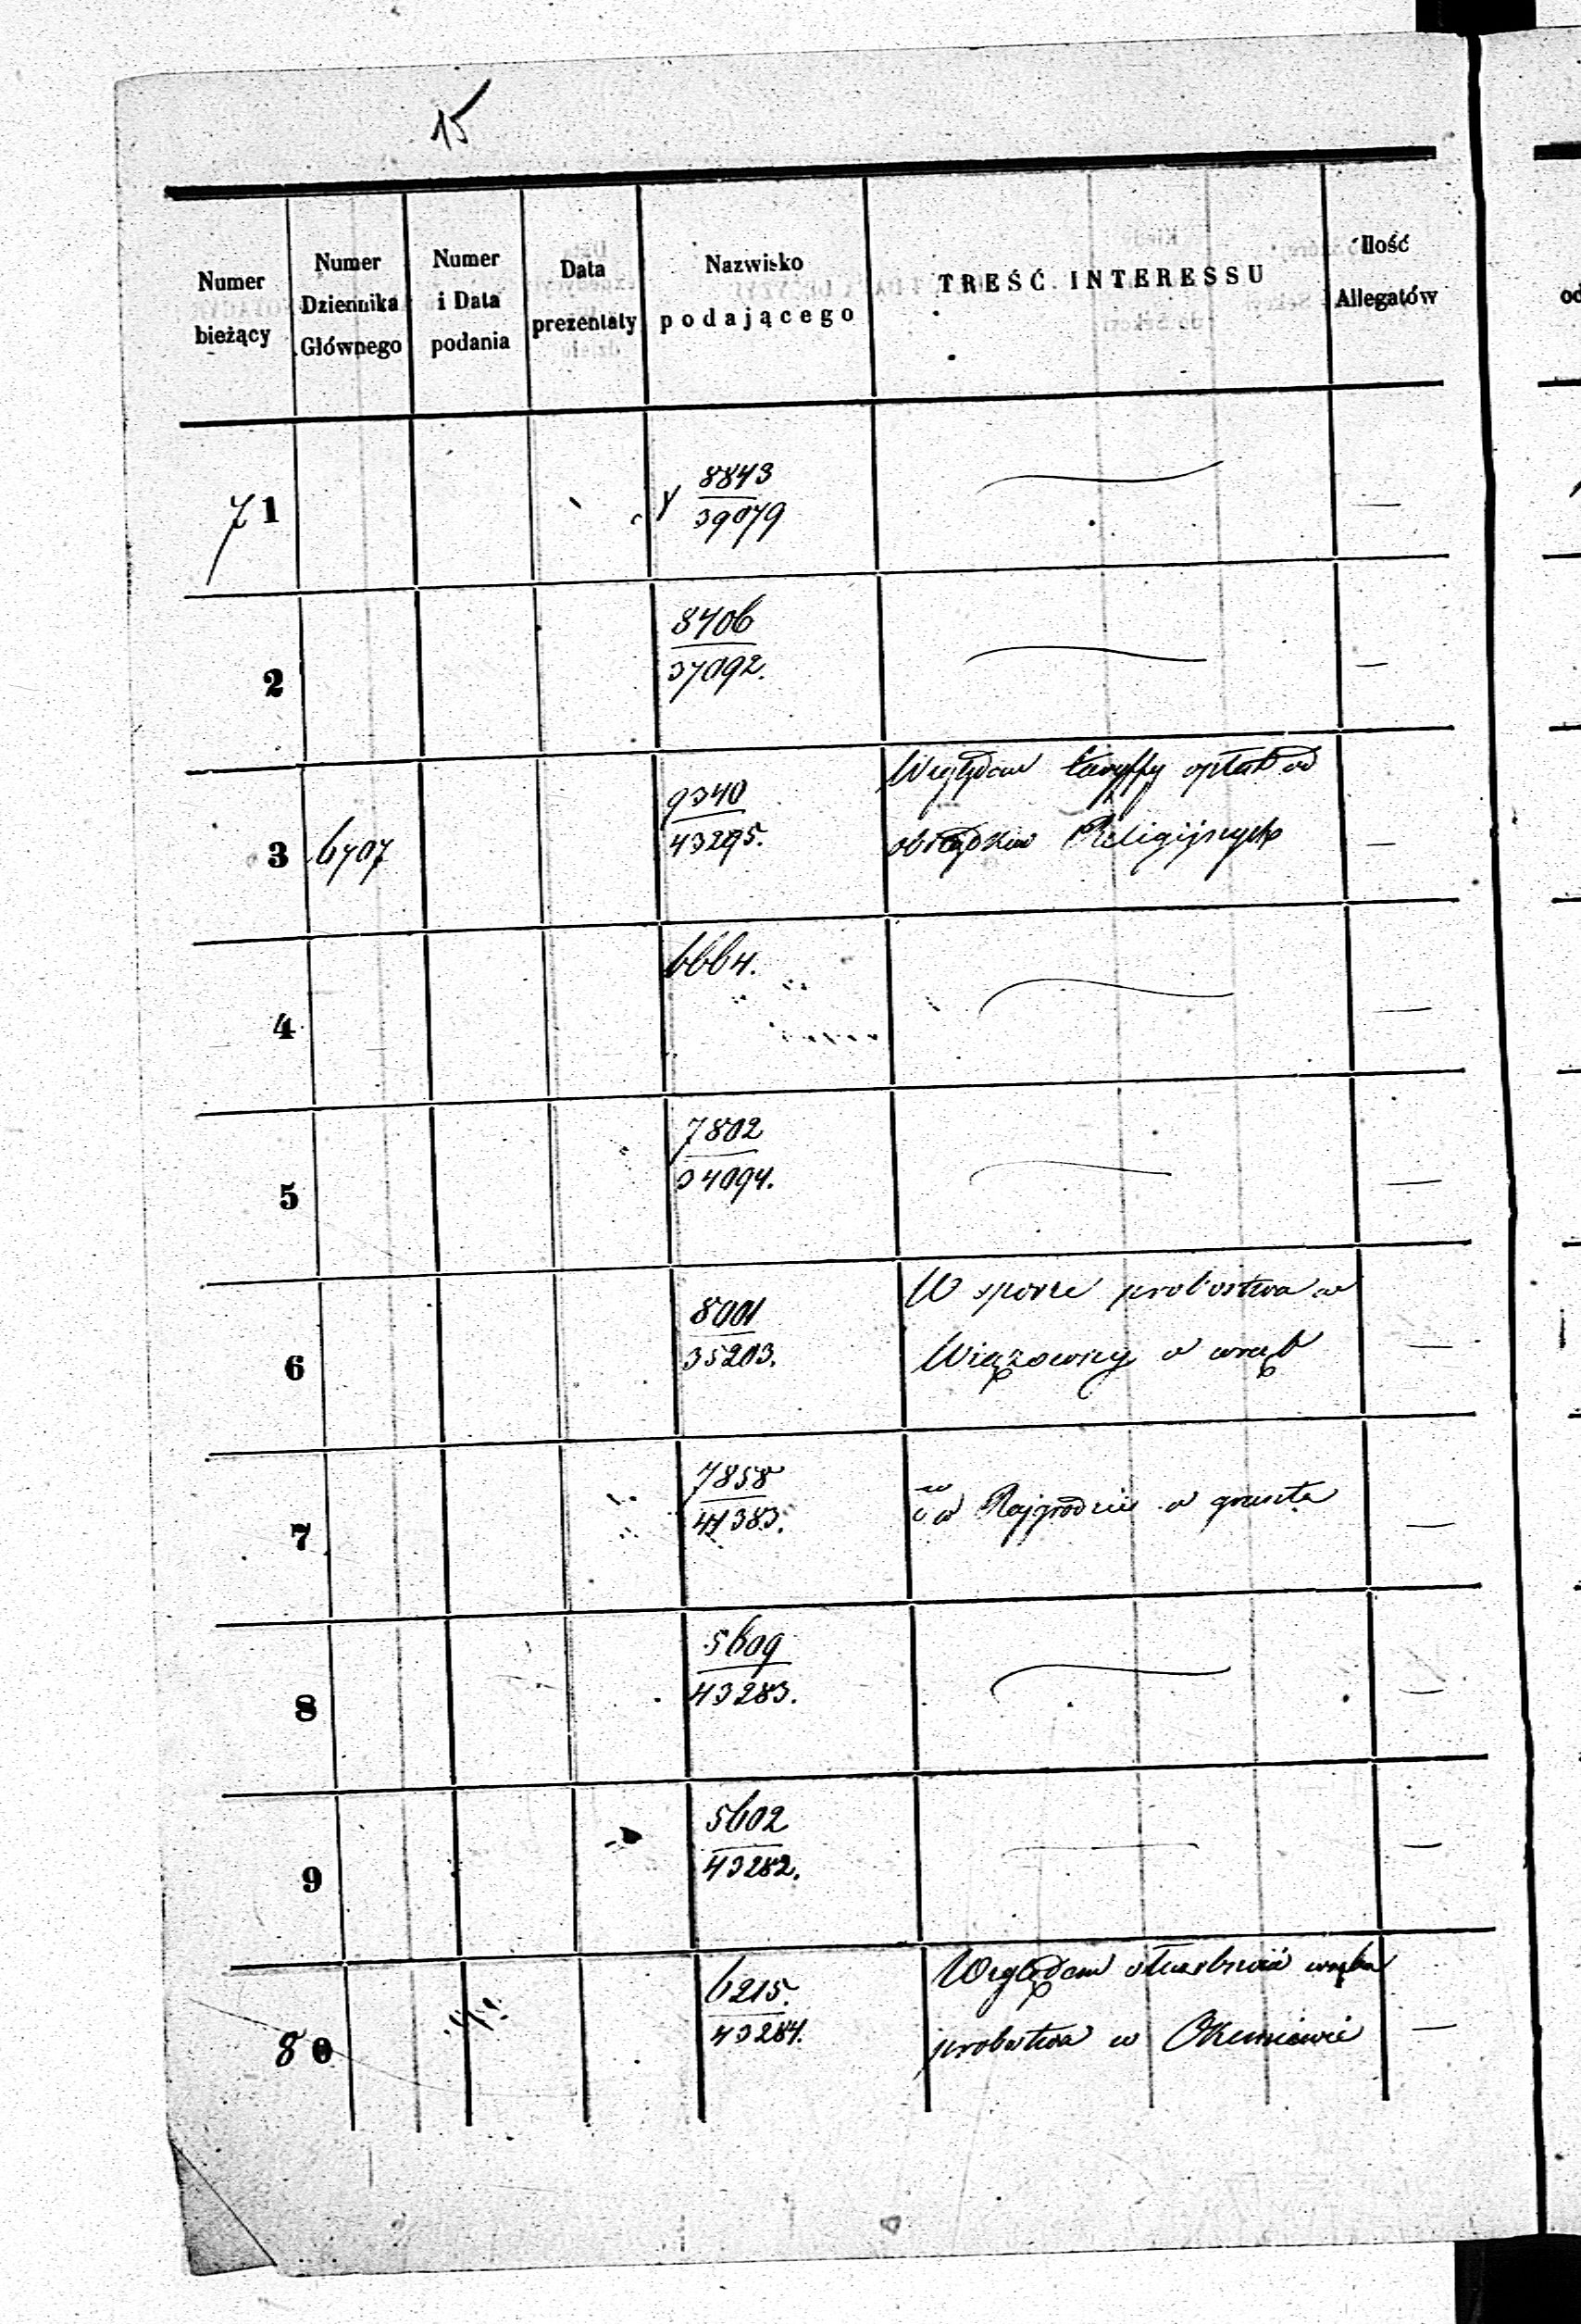 15
Numer
bieżący
Numer
Dziennika
Głównego
Numer
i Data
podania
Data
prezentaty
Nazwisko
podającego
TREŚĆ INTERESSU
Ilość
Allegatów
71
8843
39079
2
8706
37092.
3 6707
9340
43295.
Względem taryffy opłat od
obrządków Religijnych
4
6664.
5
7802
34094.
6
8001
35203.
W sporze probostwa w
Wiązowny o wrąb
7
7858
41383.
w Rajgrodzie o grunta
8
5609
43283.
9
5602
43282.
80
6215.
43284.
Względem wrębu
probostwa w Okuniewie